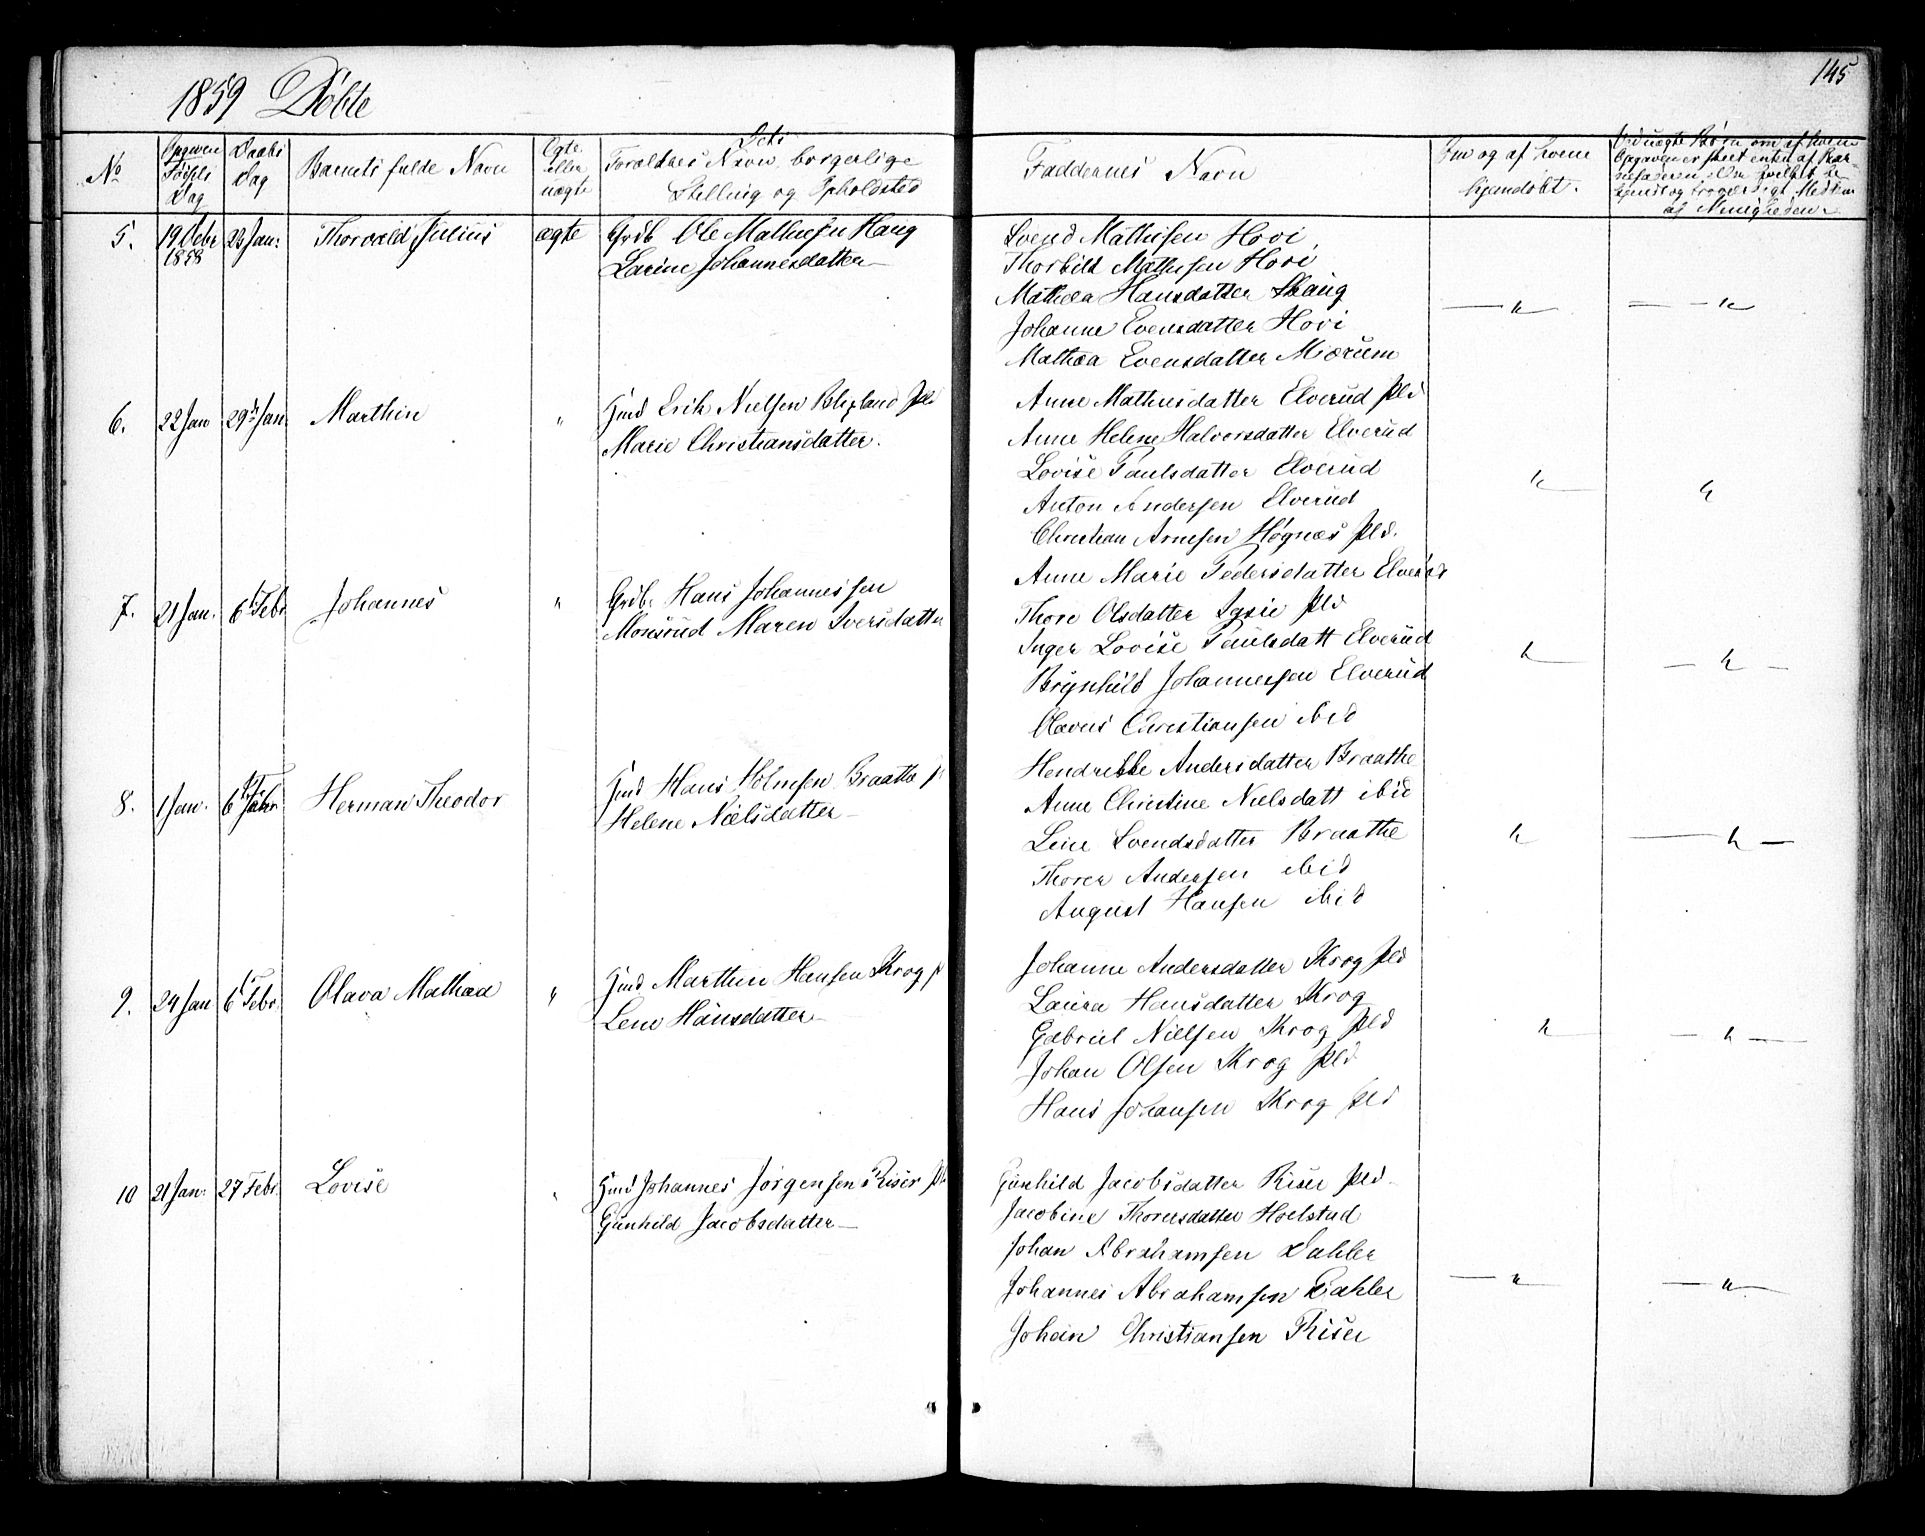 145
1859 Døbte
No
Opgiven Fødsels Dag
Daabs Dag
Barnets fulde Navn
Ægte eller uægte
Forældres Navn, borgerlige
Stilling og Opholdsted
Faddernes Navn
Om og af hvem
hjemdøbt.
5. 19 Octbr 1858 23 Jan: Thorvald Julius ægte Grdb Ole Mathisen Haug
Larine Johannesdatter
Svend Mathisen Hovi
Thorkild Mathisen Hovi
Mathea Hansdatter Skaug
Johanne Evensdatter Hovi
Mathea Evensdatter Miørum
6. 22 Jan 29 Jan. Marthin " Hmd Erik Nielsen Pld
Marie Christiansdatter.
Anne Mathisdatter Elverud Pld
Anne Helene Halvorsdatter Elverud
Lovise Paulsdatter Elverud
Anton Andersen Elverud
Christian Arnesen Høgnæs Pld.
7. 21 Jan. 6 Febr Johannes " Grdb. Hans Johannessen
Monsrud Maren Iversdatter
Anne Marie Pedersdatter Elverud
Thore Olsdatter Pld
Inger Lovise Paulsdatt Elverud
Brynhild Johannessen Elverud
Olavus Christiansen ibid
8. 1 Jan. 6 Herman Theodor " Hmd Hans Holmsen Braathe
Helene Nielsdatter
Hendrikke Andersdatter Braathe
Anne Christine Nielsdatt ibid
Lene Svendsdatter Braathe
Thorer Andersen ibid
August Hansen ibid
9. 24 Jan 6 Febr. Olava Mathea " Hmd Marthin Hansen Krog
Lene Hansdatter
Johanne Andersdatter Krog Pld
Laura Hansdatter Krog
Gabriel Nielsen Krog Pld
Johan Olsen Krog Pld
Hans Johansen Krog Pld
10 21 Jan: 27 Febr. Lovise " Hmd Johannes Jørgensen Riser
Gunhild Jacobsdatter
Gunhild Jacobsdatter Riser Pld.
Jacobine Thorersdatter Hoelstad
Johan Abrahamsen Dahler
Johannes Abrahamsen Dahler
Johan Christiansen Riser